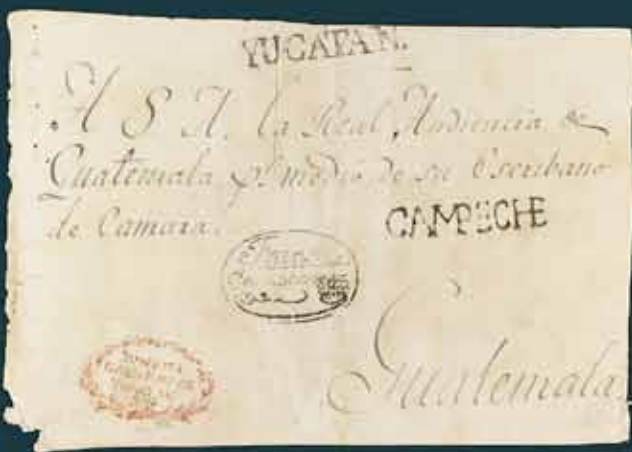 YUCATAN.
A S A. la Real Audiencia de
Guatemala pr. medio de su Escribano
de Camara.
CAMPECHE
Guatemala